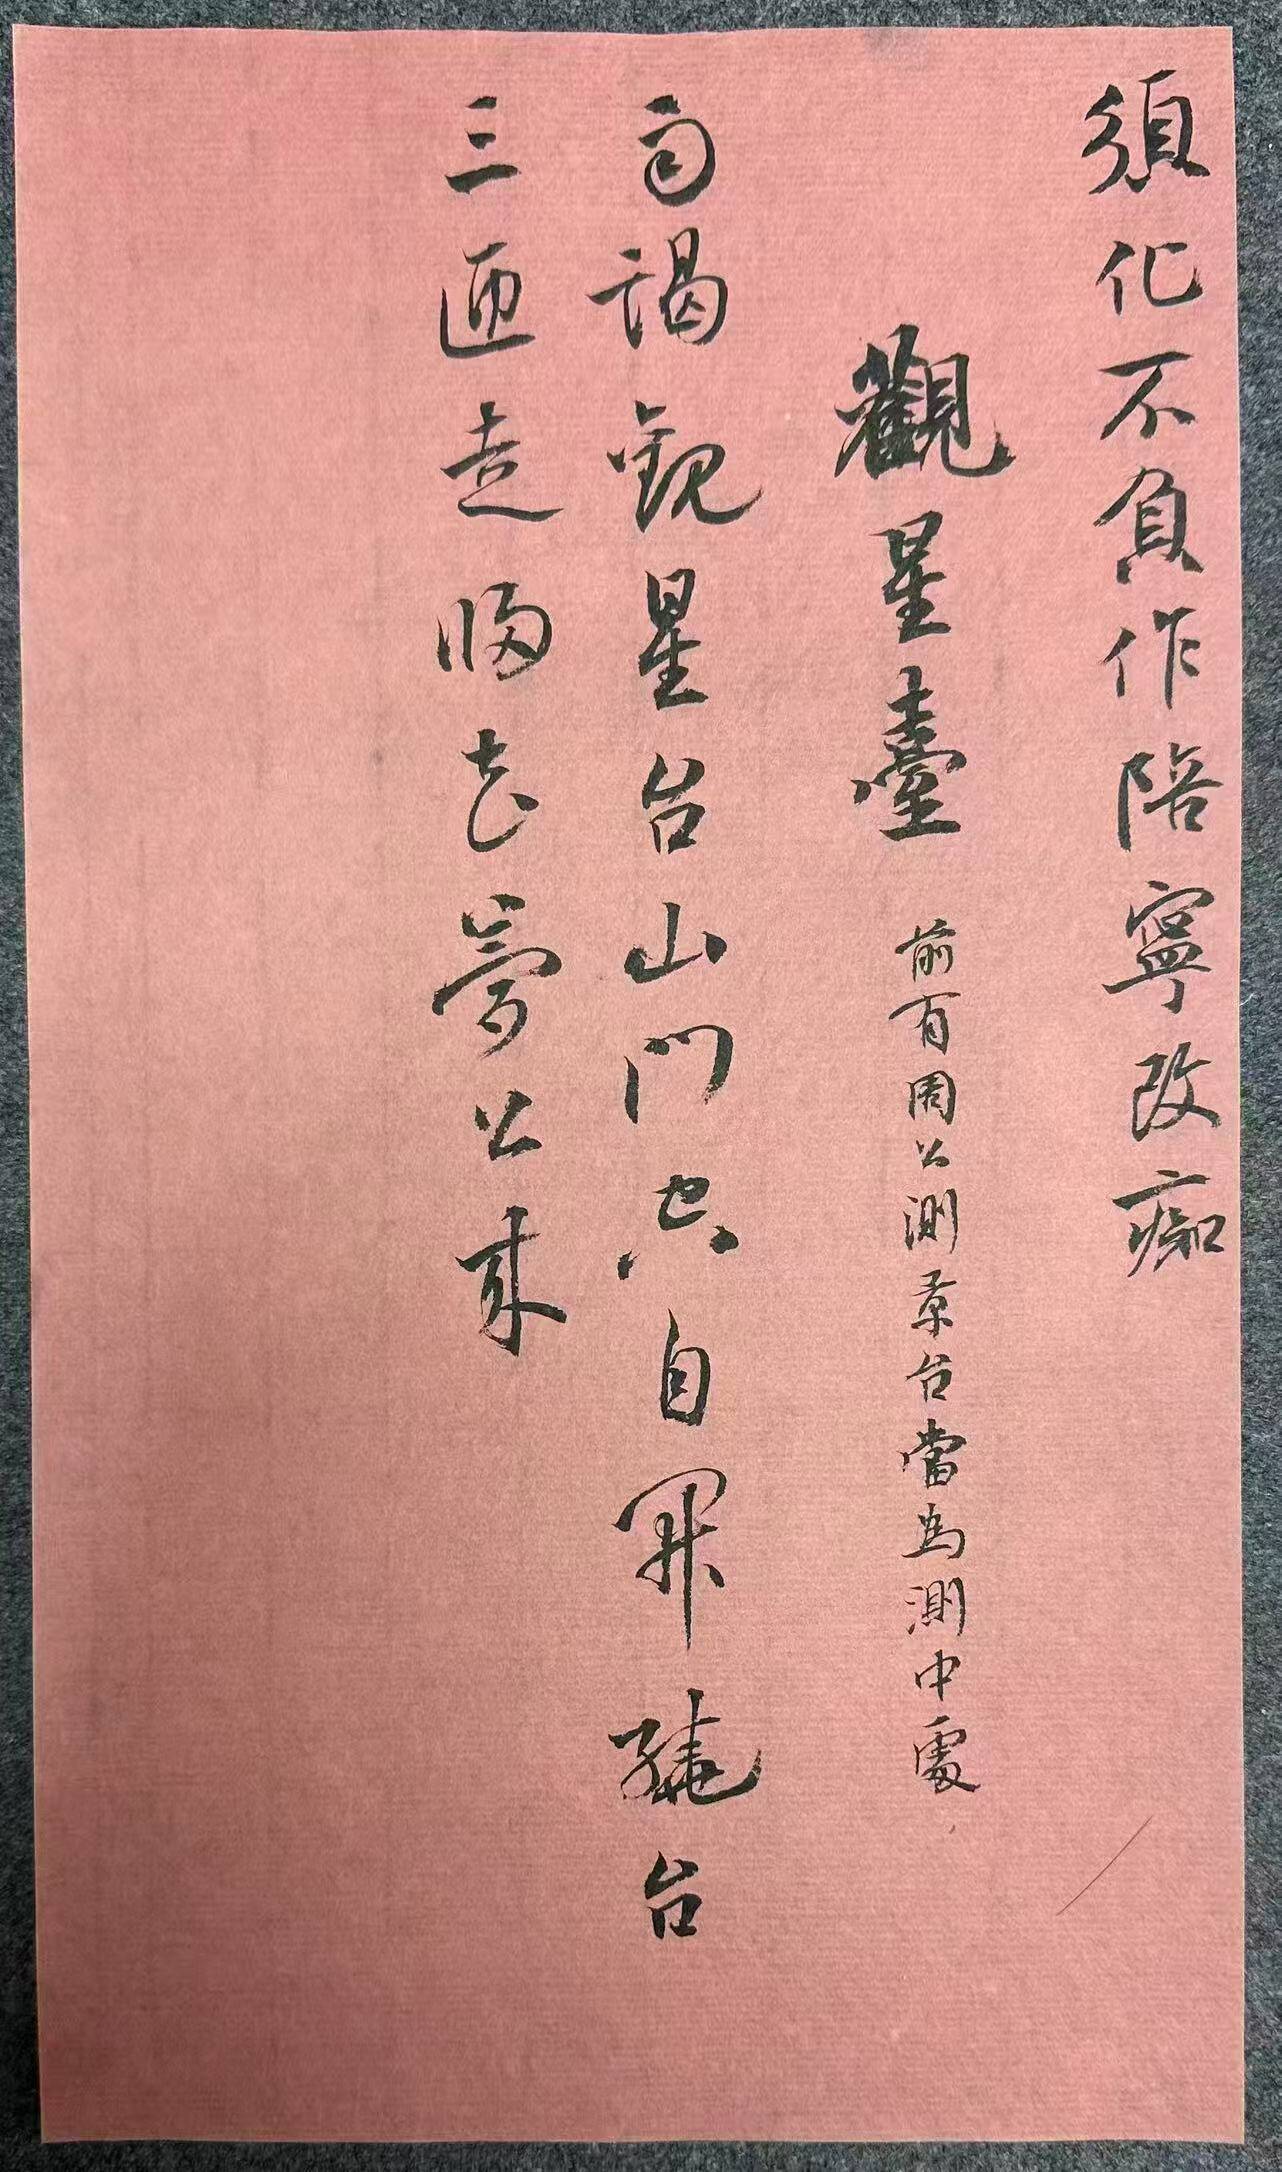 須化不負作陪寧改痴
觀星臺 前有周公測景台當為測中處
雨謁觀星台山門只自開繞台
三匝走歸去夢公來